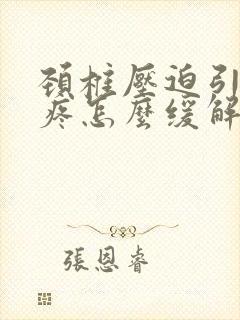 頸椎壓迫引
疼怎麼緩解
張恩睿